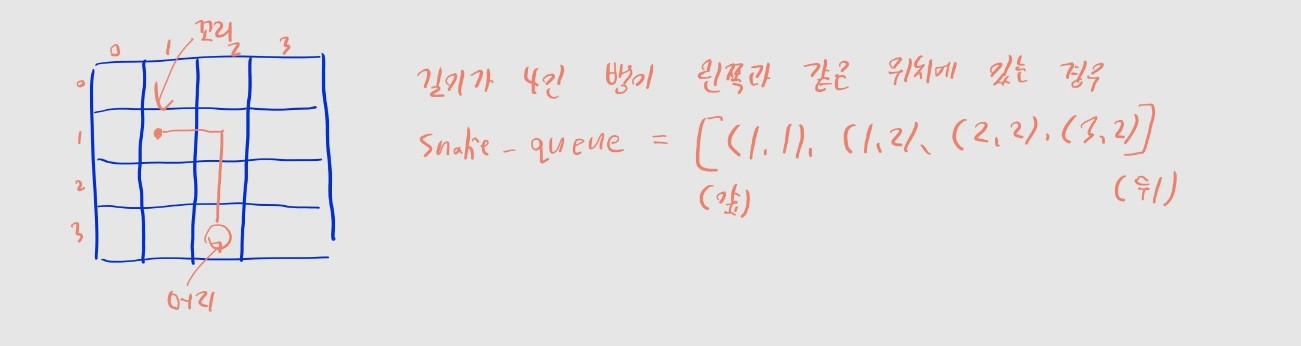 꼬리
0 1 2 3
0
1
2
3
머리
길이가 4인 뱀이 왼쪽과 같은 위치에 있는 경우
snake_queue = [(1,1), (1,2), (2,2), (3,2)]
(앞) (뒤)